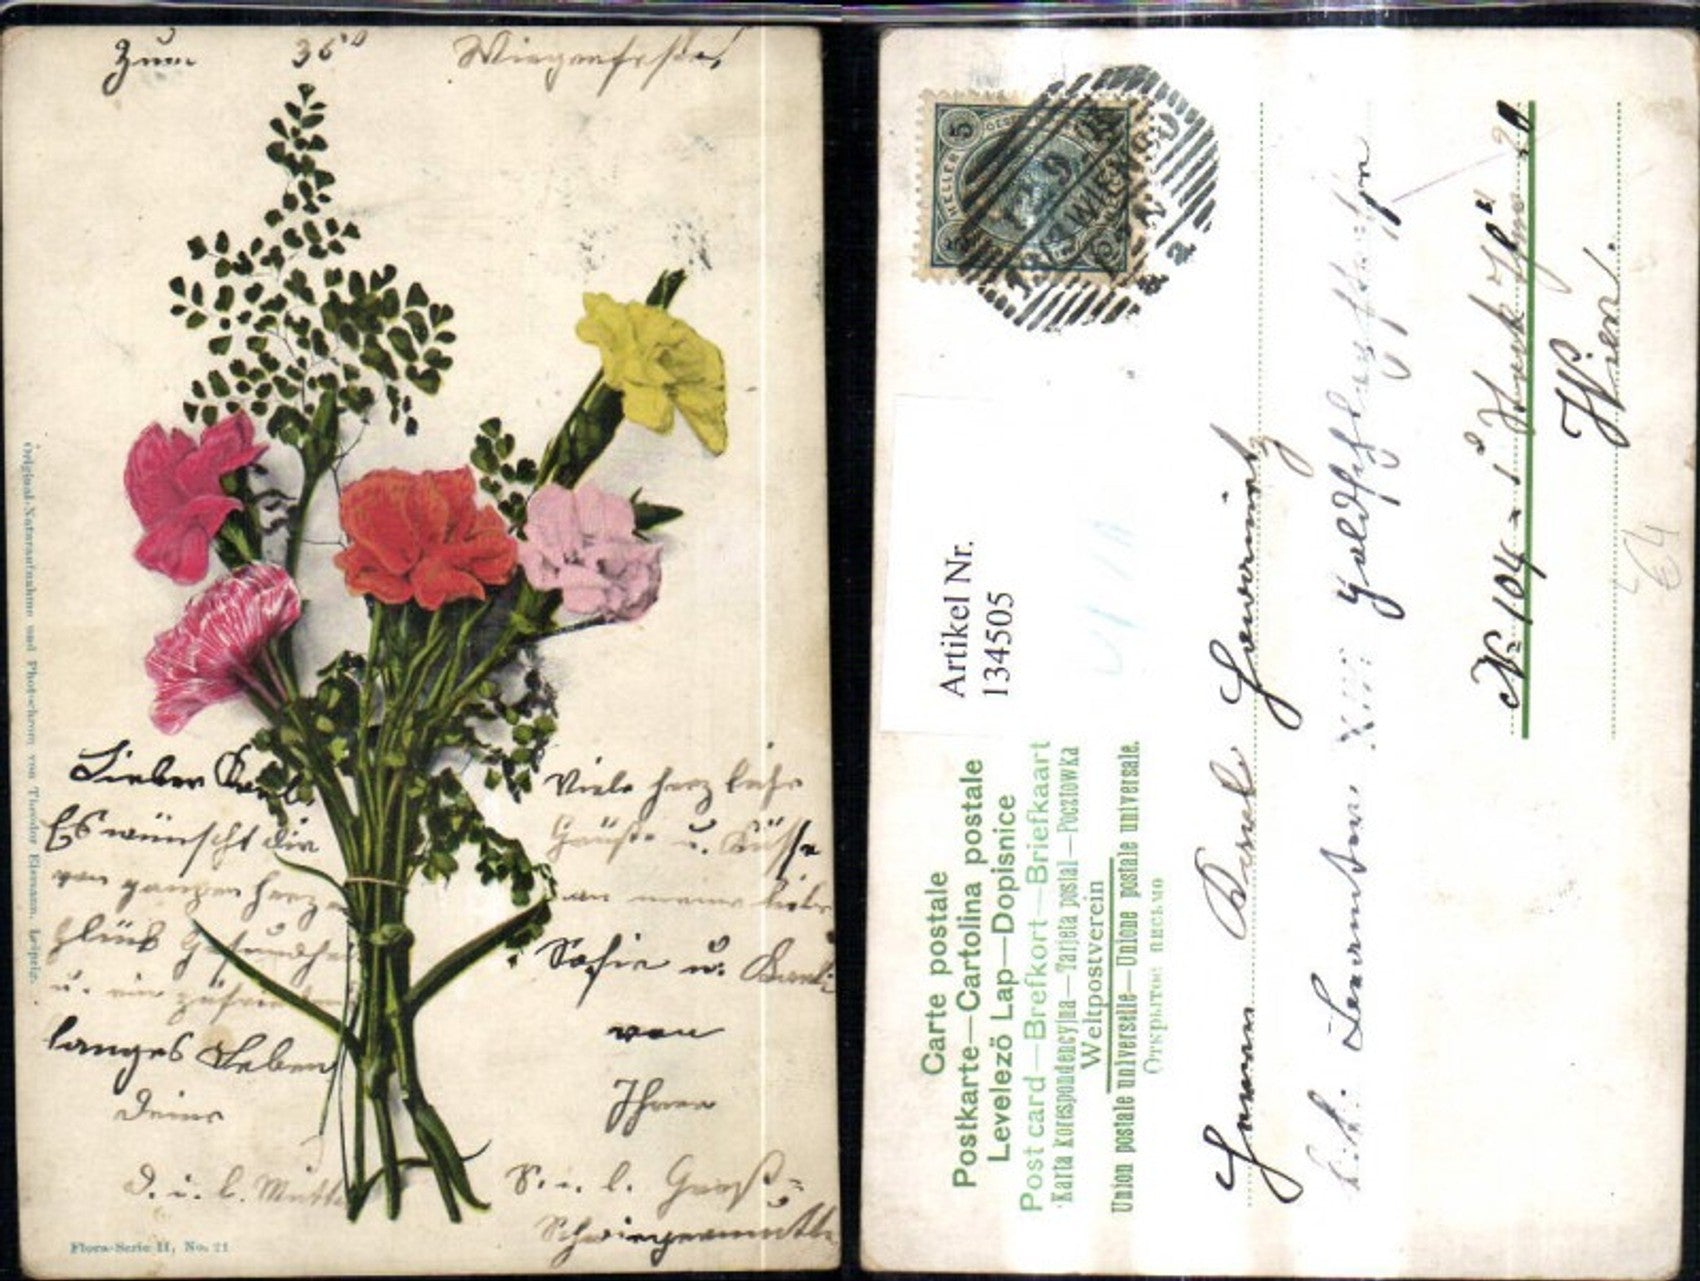 Zum 36ten Wiegenfeste
Lieber Karl
Es wünscht dir
von ganzen Herzen
Glück Gesundheit
u. ein zufriedenes
langes Leben
Deine
d. i. l. Mutter
Viele herzliche
Grüße u. Küsse
an meine liebe
Sofie u. Karli
von
Ihrer
S. i. l. Groß=
Schwiegermutter
Original-Naturaufnahme und Photochrom von Theodor Eismann, Leipzig.
Flora-Serie II, No. 21
5 HELLER 5
WIEN
Artikel Nr.
134505
Carte postale
Postkarte—Cartolina postale
Levelező Lap—Dopisnice
Post card—Brefkort—Briefkaart
Karta Korespondencyjna—Tarjeta postal—Pocztowka
Weltpostverein
Union postale universelle—Unione postale universale.
Открытое письмо
Herrn Karl
k. k. Beamter XIII
No 104
Wien
€ 4